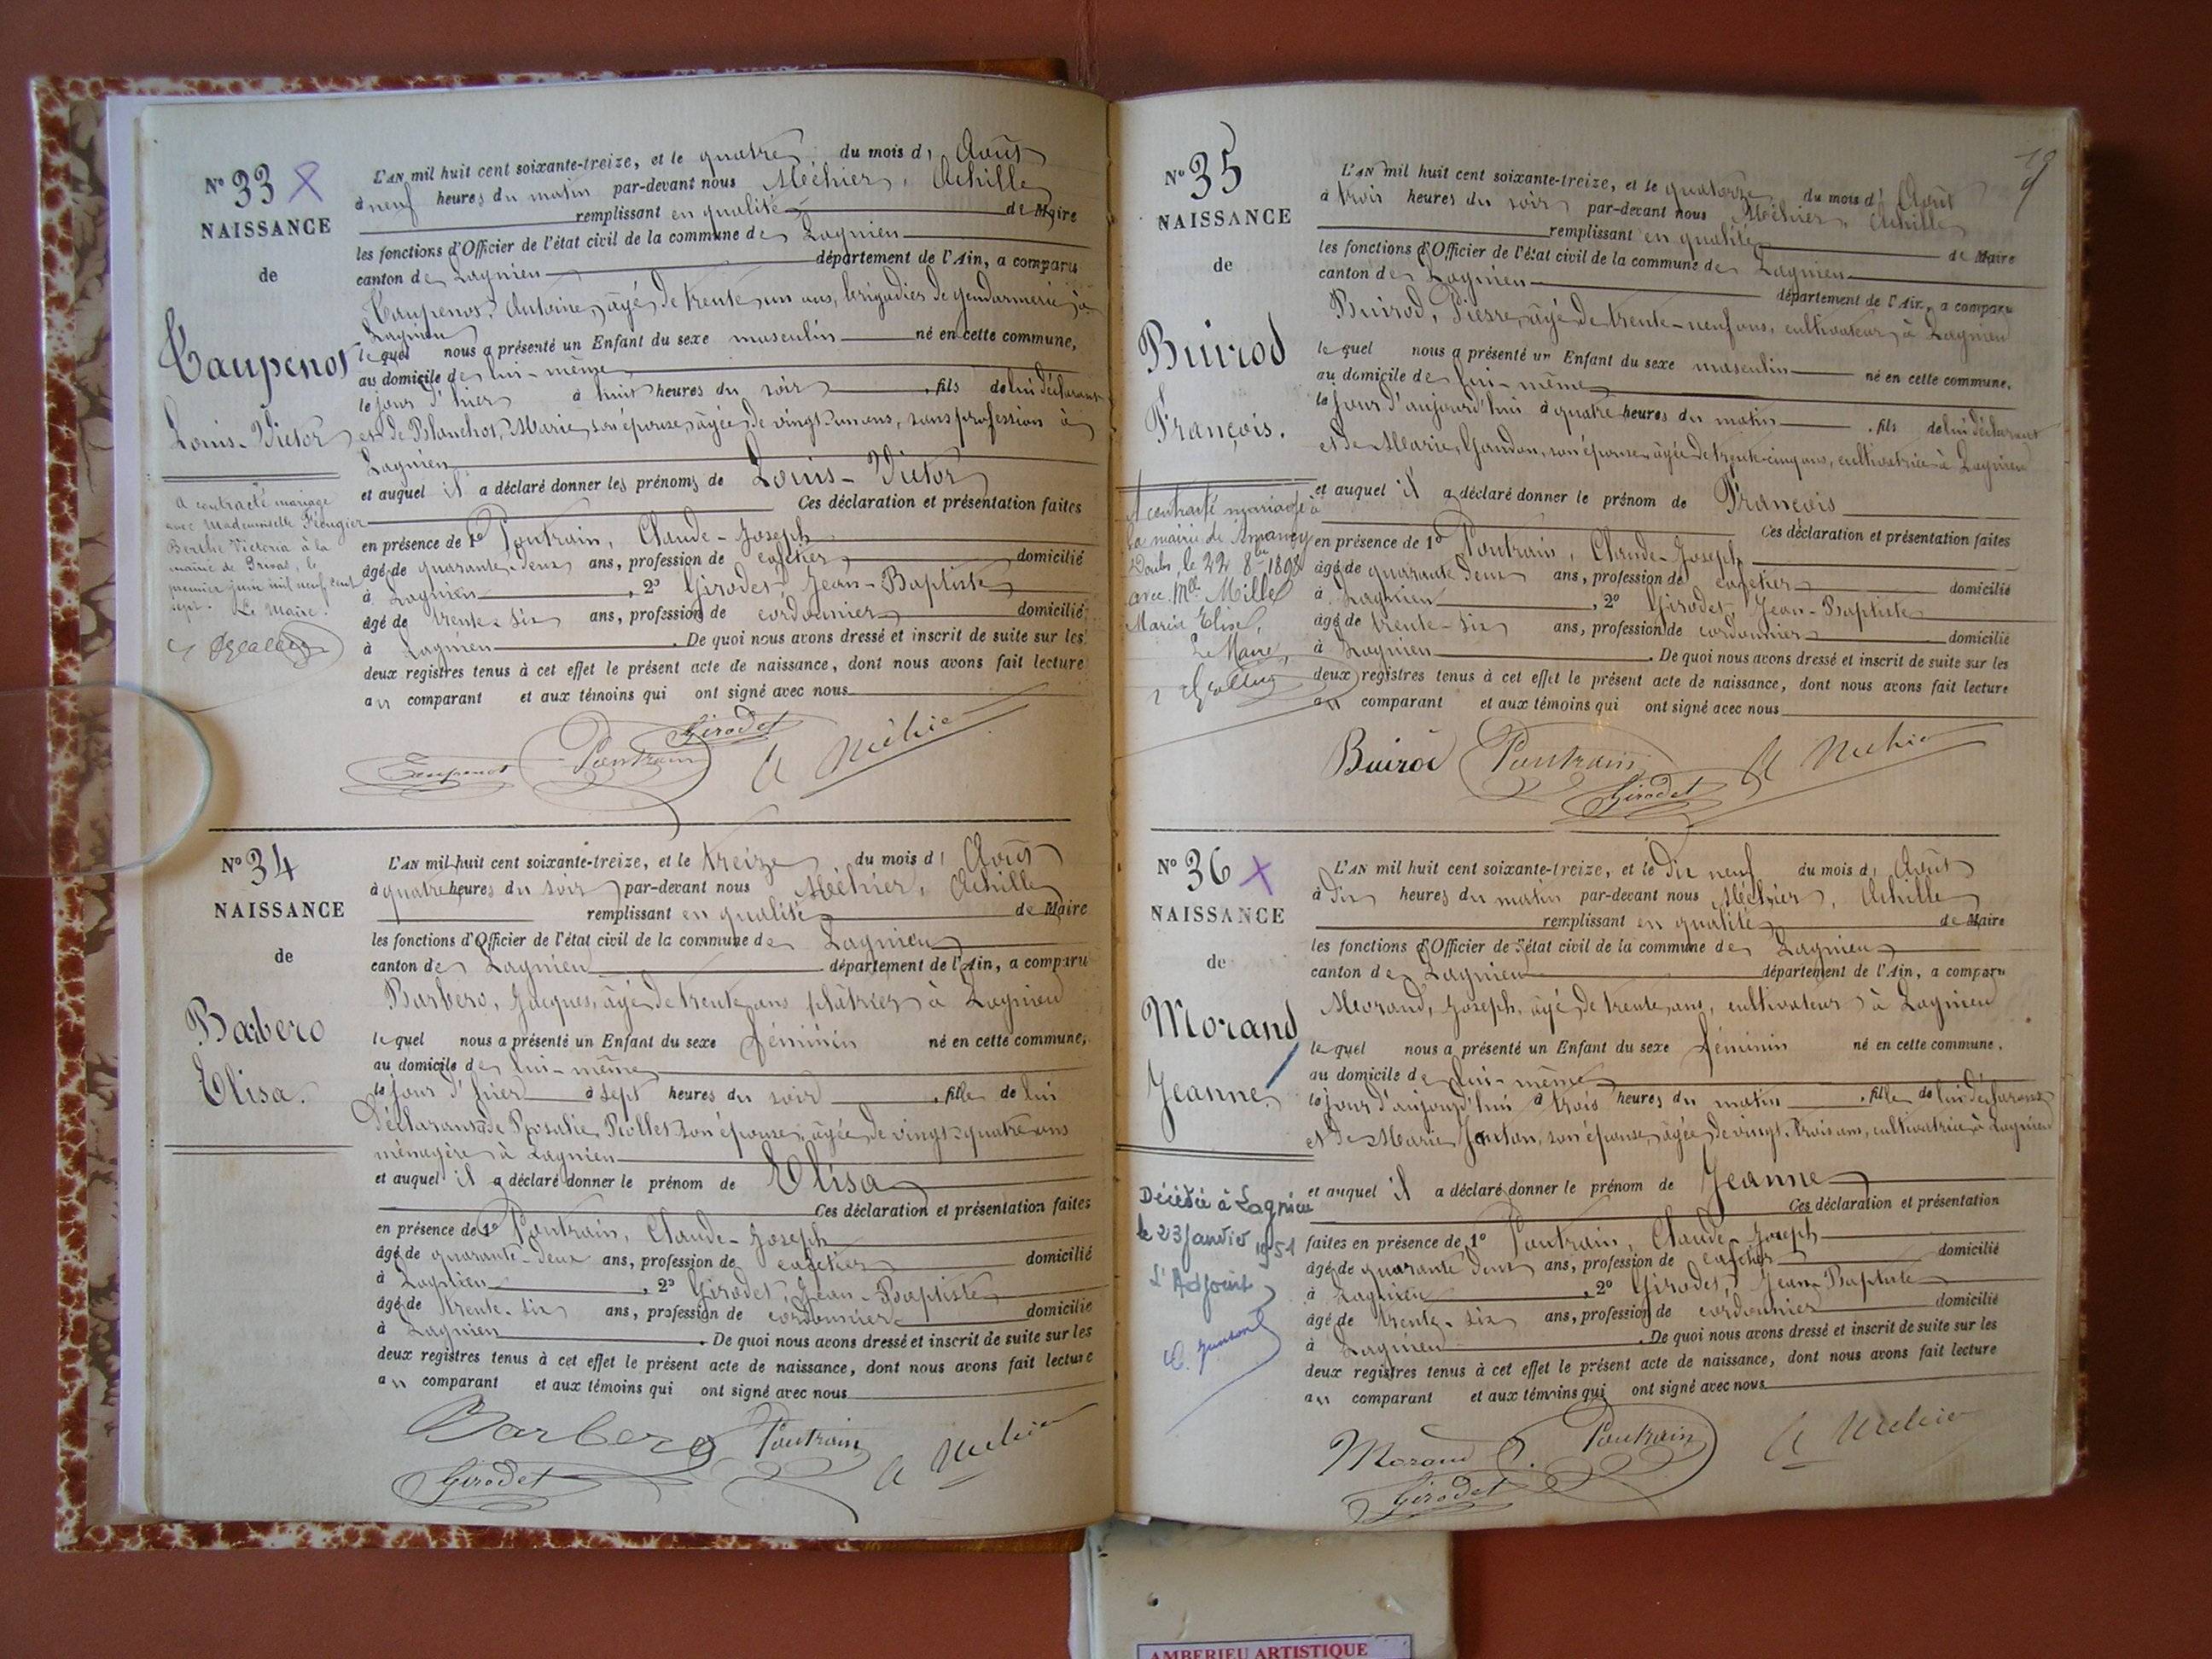 N° 33 X
NAISSANCE
de
Taupenot
Louis-Victor
A contracté mariage
avec Mademoiselle Feougier
Berthe Victoria à la
mairie de Privas, le
premier juin mil neuf cent
sept. Le Maire.
L'AN mil huit cent soixante-treize, et le quatre du mois d' Août
à neuf heures du matin par-devant nous Méhier, Achille
remplissant en qualité de Maire
les fonctions d'Officier de l'état civil de la commune de Lagnieu
canton de Lagnieu département de l'Ain, a comparu
Taupenot, Antoine, âgé de trente un ans, brigadier de gendarmerie à
Lagnieu
lequel nous a présenté un Enfant du sexe masculin né en cette commune,
au domicile de lui-même
le jour d'hier à huit heures du soir, fils de lui déclarant
et de Blanchot, Marie, son épouse, âgée de vingt un ans, sans profession à
Lagnieu
et auquel il a déclaré donner les prénoms de Louis-Victor
Ces déclaration et présentation faites
en présence de 1° Poutrain, Claude-Joseph
âgé de quarante-deux ans, profession de cafetier domicilié
à Lagnieu, 2° Girodet, Jean-Baptiste
âgé de trente-six ans, profession de cordonnier domicilié
à Lagnieu. De quoi nous avons dressé et inscrit de suite sur les
deux registres tenus à cet effet le présent acte de naissance, dont nous avons fait lecture
au comparant et aux témoins qui ont signé avec nous
Taupenot Poutrain Girodet A Méhier
N° 34
NAISSANCE
de
Barbero
Elisa.
L'AN mil huit cent soixante-treize, et le treize du mois d' Août
à quatre heures du soir par-devant nous Méhier, Achille
remplissant en qualité de Maire
les fonctions d'Officier de l'état civil de la commune de Lagnieu
canton de Lagnieu département de l'Ain, a comparu
Barbero, Jacques, âgé de trente ans plâtrier à Lagnieu
lequel nous a présenté un Enfant du sexe féminin né en cette commune,
au domicile de lui-même
le jour d'hier à sept heures du soir, fille de lui
déclarant & de Rosalie Piollet son épouse, âgée de vingt-quatre ans
ménagère à Lagnieu
et auquel il a déclaré donner le prénom de Elisa
Ces déclaration et présentation faites
en présence de 1° Poutrain, Claude-Joseph
âgé de quarante-deux ans, profession de cafetier domicilié
à Lagnieu, 2° Girodet, Jean-Baptiste
âgé de trente-six ans, profession de cordonnier domicilié
à Lagnieu. De quoi nous avons dressé et inscrit de suite sur les
deux registres tenus à cet effet le présent acte de naissance, dont nous avons fait lecture
au comparant et aux témoins qui ont signé avec nous
Barbero Poutrain A Méhier
Girodet
19
N° 35
NAISSANCE
de
Buirod
François.
A contracté mariage à
la mairie de
Doubs, le 22 8bre 1898
avec Mlle Millet
Marie Elise,
Le Maire,
L'AN mil huit cent soixante-treize, et le quatorze du mois d' Août
à trois heures du soir par-devant nous Méhier, Achille
remplissant en qualité de Maire
les fonctions d'Officier de l'état civil de la commune de Lagnieu
canton de Lagnieu département de l'Ain, a comparu
Buirod, Pierre, âgé de trente-neuf ans, cultivateur, à Lagnieu
lequel nous a présenté un Enfant du sexe masculin né en cette commune.
au domicile de lui-même
le jour d'aujourd'hui à quatre heures du matin, fils de lui déclarant
et de Marie Gandon, son épouse âgée de trente-cinq ans, cultivatrice à Lagnieu
et auquel il a déclaré donner le prénom de François
Ces déclaration et présentation faites
en présence de 1° Poutrain, Claude-Joseph
âgé de quarante deux ans, profession de cafetier domicilié
à Lagnieu, 2° Girodet, Jean-Baptiste
âgé de trente-six ans, profession de cordonnier domicilié
à Lagnieu. De quoi nous avons dressé et inscrit de suite sur les
deux registres tenus à cet effet le présent acte de naissance, dont nous avons fait lecture
au comparant et aux témoins qui ont signé avec nous
Buirod Poutrain A Méhier
Girodet
N° 36 X
NAISSANCE
de
Morand
Jeanne
Décédée à Lagnieu
le 23 Janvier 1951
L'Adjoint
L'AN mil huit cent soixante-treize, et le dix neuf du mois d' Août
à dix heures du matin par-devant nous Méhier, Achille
remplissant en qualité de Maire
les fonctions d'Officier de l'état civil de la commune de Lagnieu
canton de Lagnieu département de l'Ain, a comparu
Morand, Joseph, âgé de trente ans, cultivateur à Lagnieu
lequel nous a présenté un Enfant du sexe féminin né en cette commune.
au domicile de lui-même
le jour d'aujourd'hui à trois heures du matin, fille de lui déclarant
et de Marie son épouse, âgée de vingt-trois ans, cultivatrice à Lagnieu
et auquel il a déclaré donner le prénom de Jeanne
Ces déclaration et présentation
faites en présence de 1° Poutrain, Claude-Joseph
âgé de quarante deux ans, profession de cafetier domicilié
à Lagnieu, 2° Girodet, Jean-Baptiste
âgé de trente-six ans, profession de cordonnier domicilié
à Lagnieu. De quoi nous avons dressé et inscrit de suite sur les
deux registres tenus à cet effet le présent acte de naissance, dont nous avons fait lecture
au comparant et aux témoins qui ont signé avec nous
Morand Poutrain A Méhier
Girodet
AMBERIEU ARTISTIQUE